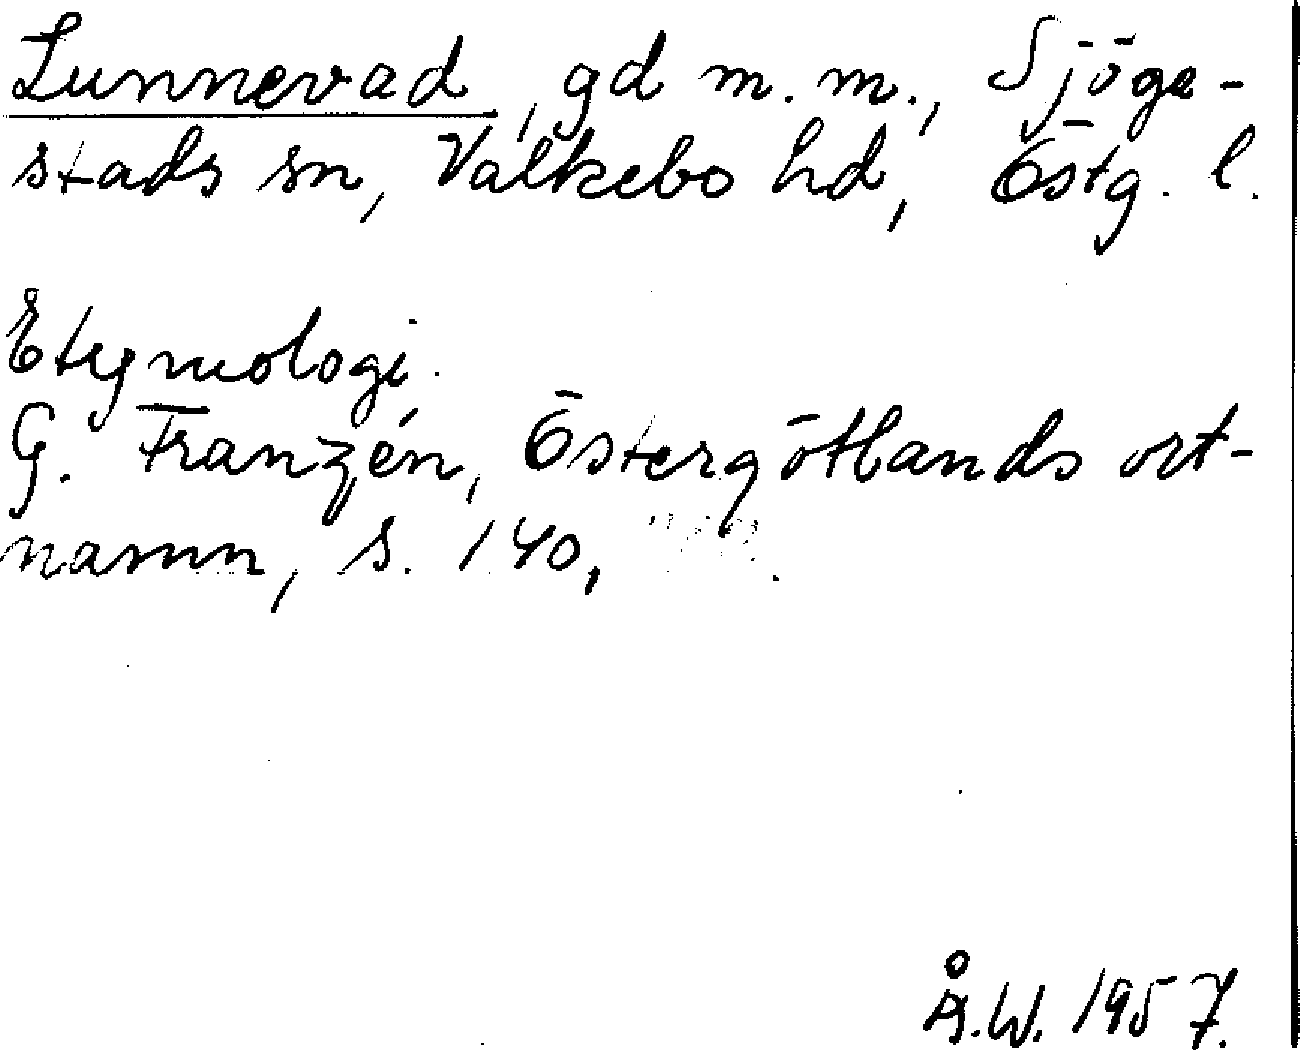 Lunnevad, gd m. m., Sjöge-
stads sn, Valkebo hd, Östg. l.
Etymologi.
G. Franzén, Östergötlands ort-
namn, s. 140,
Å.W. 1957.